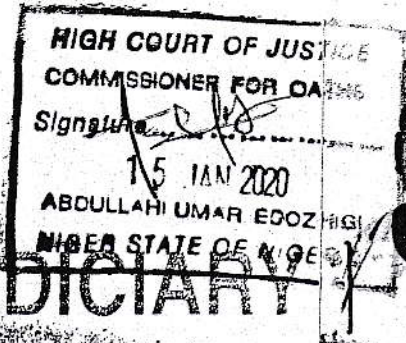 HIGH COURT OF JUSTICE
COMMISSIONER FOR OATHS
Signature
15 JAN 2020
ABDULLAHI UMAR EDOZHIGI
NIGER STATE OF NIGERIA
DICIARY